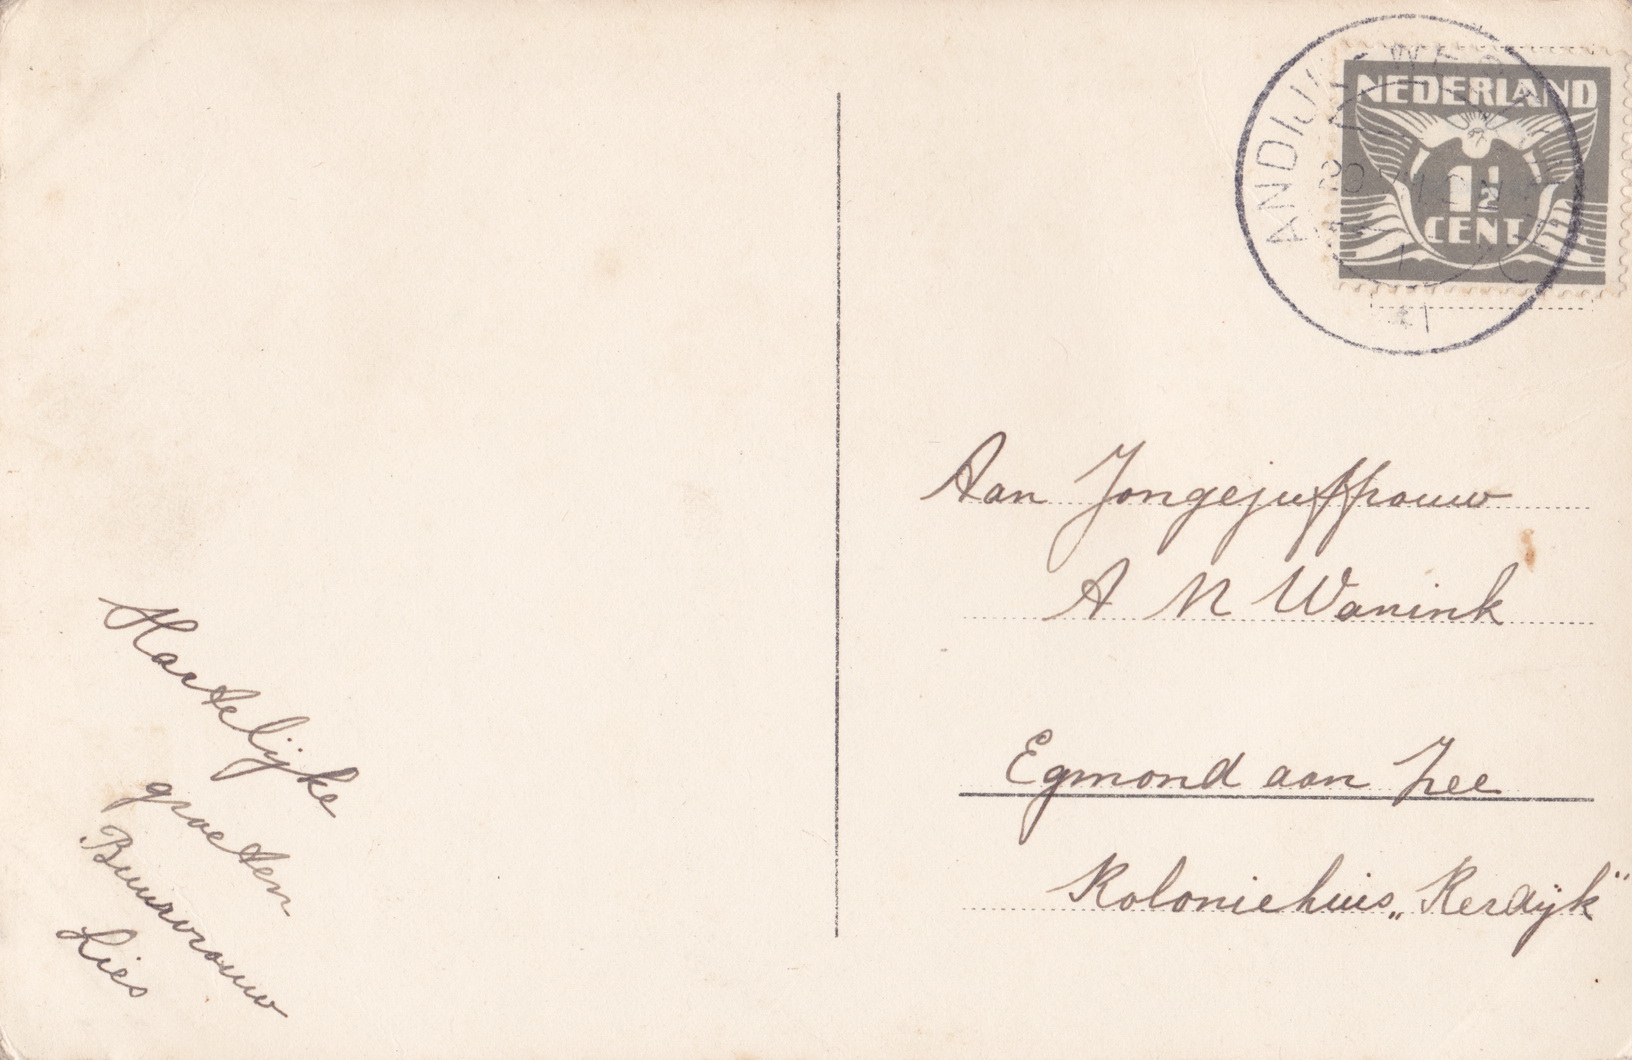 NEDERLAND
1½
CENT
ANDIJK
Aan Jongejuffrouw
A M Wanink
Egmond aan Zee
Koloniehuis „Kerdijk"
Hartelijke
groeten
Buurvrouw
Lies